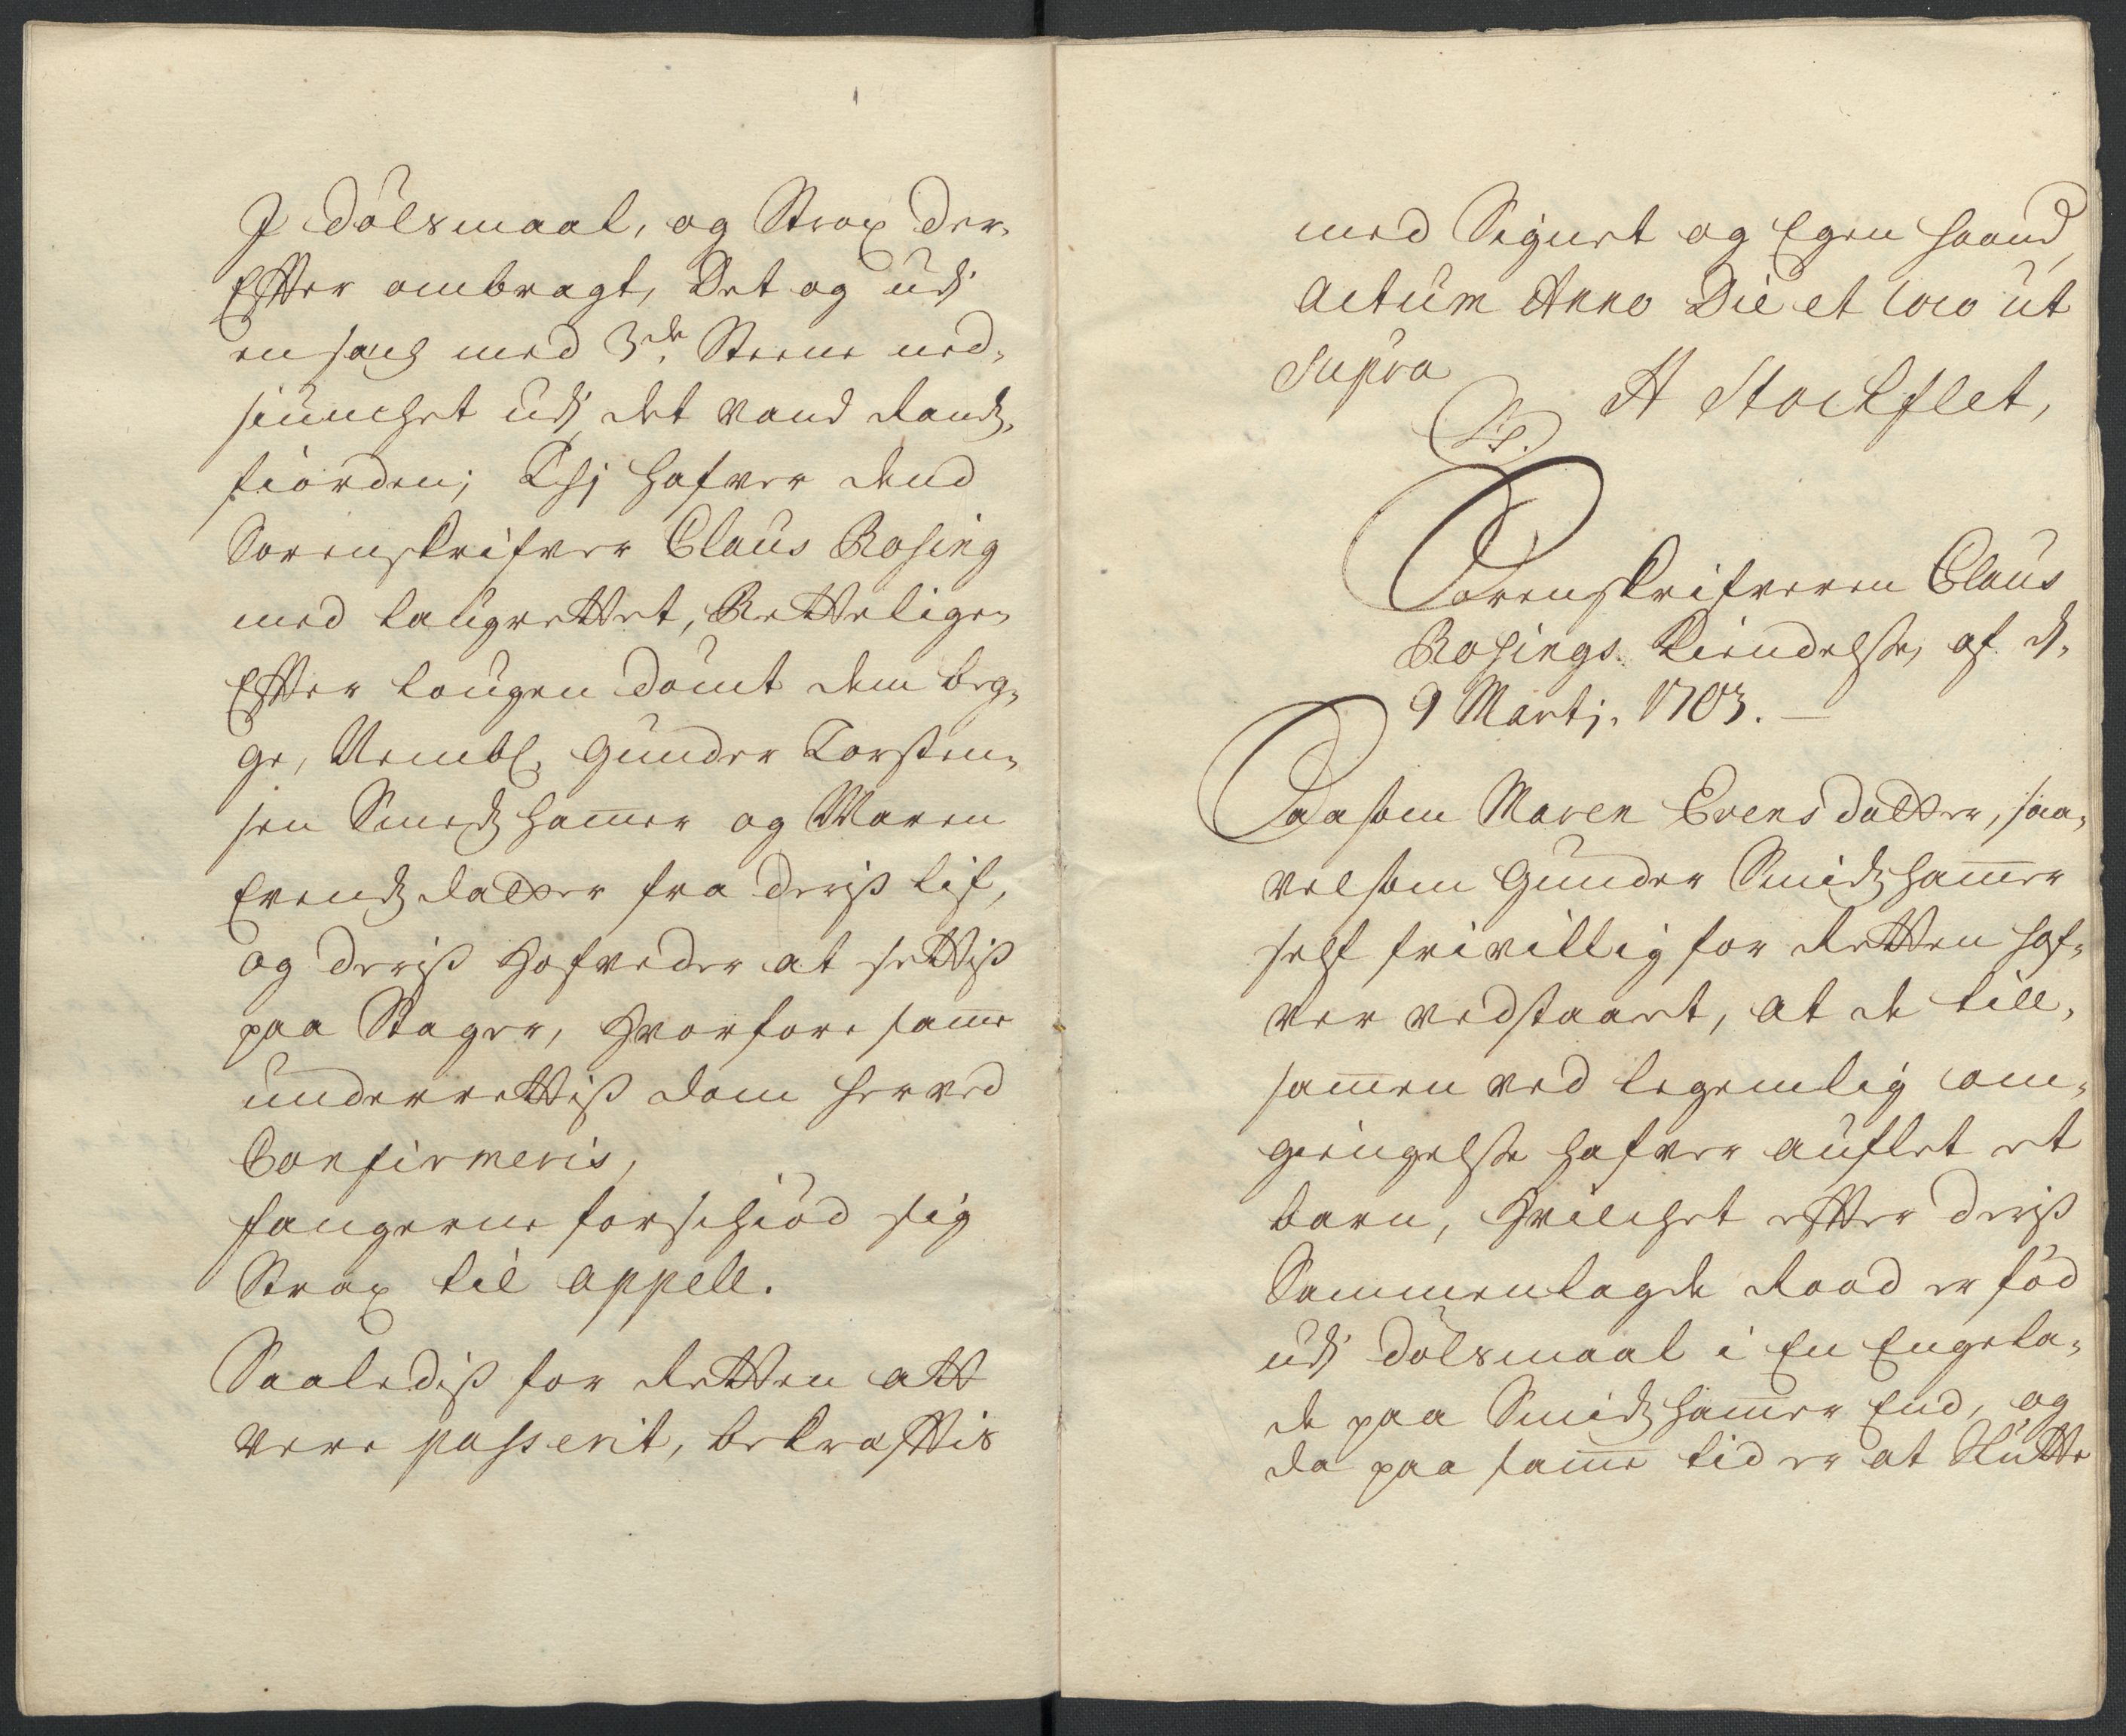 J dölsmaal, og Strax der-
Effter ombragt, Det og udj
en sech med 3de Steene ned-
siunchet udj det vand Rands-
fiorden; Thj hafver dend
Sorenskrifver Claus Rosing
med laugrettet, Rettelige-
Effter lougen dömt dem beg-
ge, Nembl. Gunder Torsten-
sen Smedshamer og Maren
Evends datter fra deriß lif,
og deriß Hofveder at settiß
paa Stager, Hvorfore samme
underrettiß dom herved
Confirmeris,
fangerne forschiöd sig
Strax til appell.
Saalediß for Retten att
vere passerit, bekrafftis
med Signet og Egen haand,
Actum Anno Die et loco ut
supra
H Stockflet,
L.S.
Sorenskrifveren Claus
Rosings. Kiendelße, af d.
9 Martj. 1703.
Saasom Maren Evensdatter, saa-
velsom Gunder Smidshamer
self frivillig for Retten haf-
ver vedstaaet, at de till-
samen ved legemlig om-
giengelße hafver auflet et
barn, Hvilchet effter deriß
Sammenlagde Raad er föd
udj dölsmaal i En Engela-
de paa Smidshamer End, og
da paa same tid er at Slutte